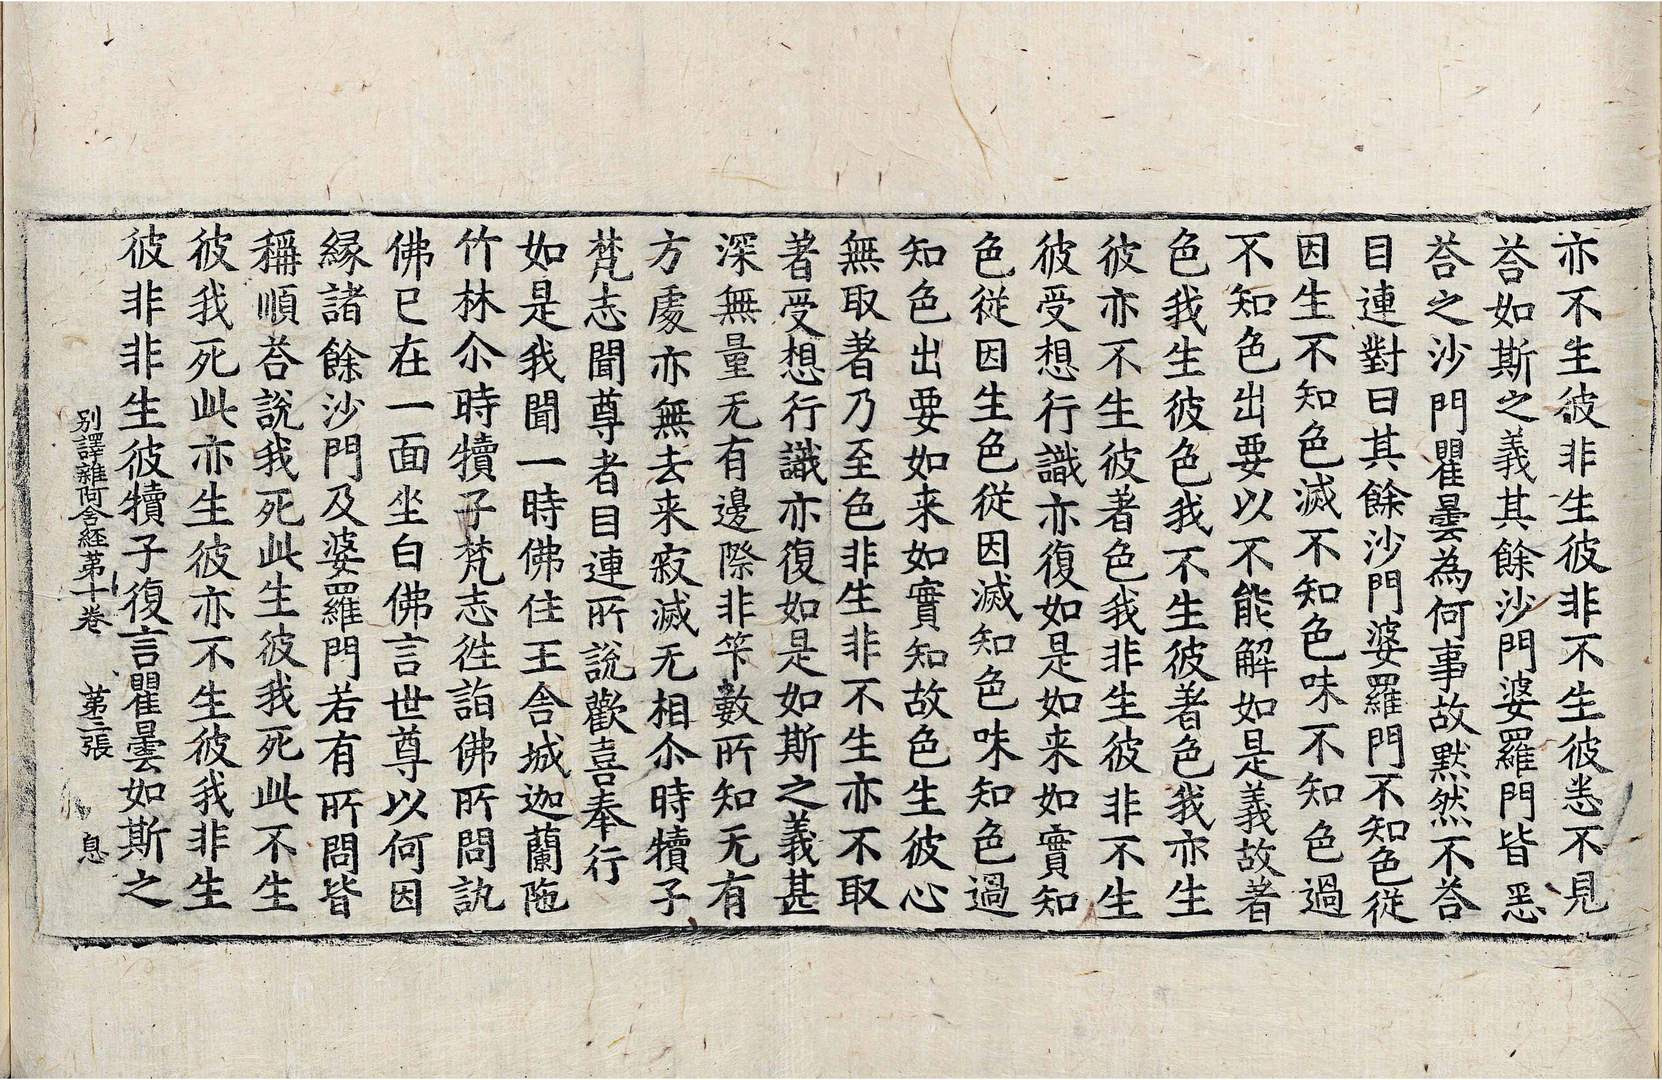 亦不生彼非生彼非不生彼悉不見
荅如斯之義其餘沙門婆羅門皆悉
荅之沙門瞿曇為何事故默然不荅
目連對曰其餘沙門婆羅門不知色従
因生不知色滅不知色味不知色過
不知色出要以不能解如是義故著
色我生彼色我不生彼著色我亦生
彼亦不生彼著色我非生彼非不生
彼受想行識亦復如是如来如實知
色従因生色従因滅知色味知色過
知色出要如来如實知故色生彼心
無取著乃至色非生非不生亦不取
著受想行識亦復如是如斯之義甚
深無量无有邊際非筭數所知无有
方處亦無去来寂滅无相尒時犢子
梵志聞尊者目連所說歡喜奉行
如是我聞一時佛住王舍城迦蘭陁
竹林尒時犢子梵志往詣佛所問訊
佛已在一面坐白佛言世尊以何因
縁諸餘沙門及婆羅門若有所問皆
稱順荅說我死此生彼我死此不生
彼我死此亦生彼亦不生彼我非生
彼非非生彼犢子復言瞿曇如斯之
别譯雜阿含経苐十卷 苐三張 息